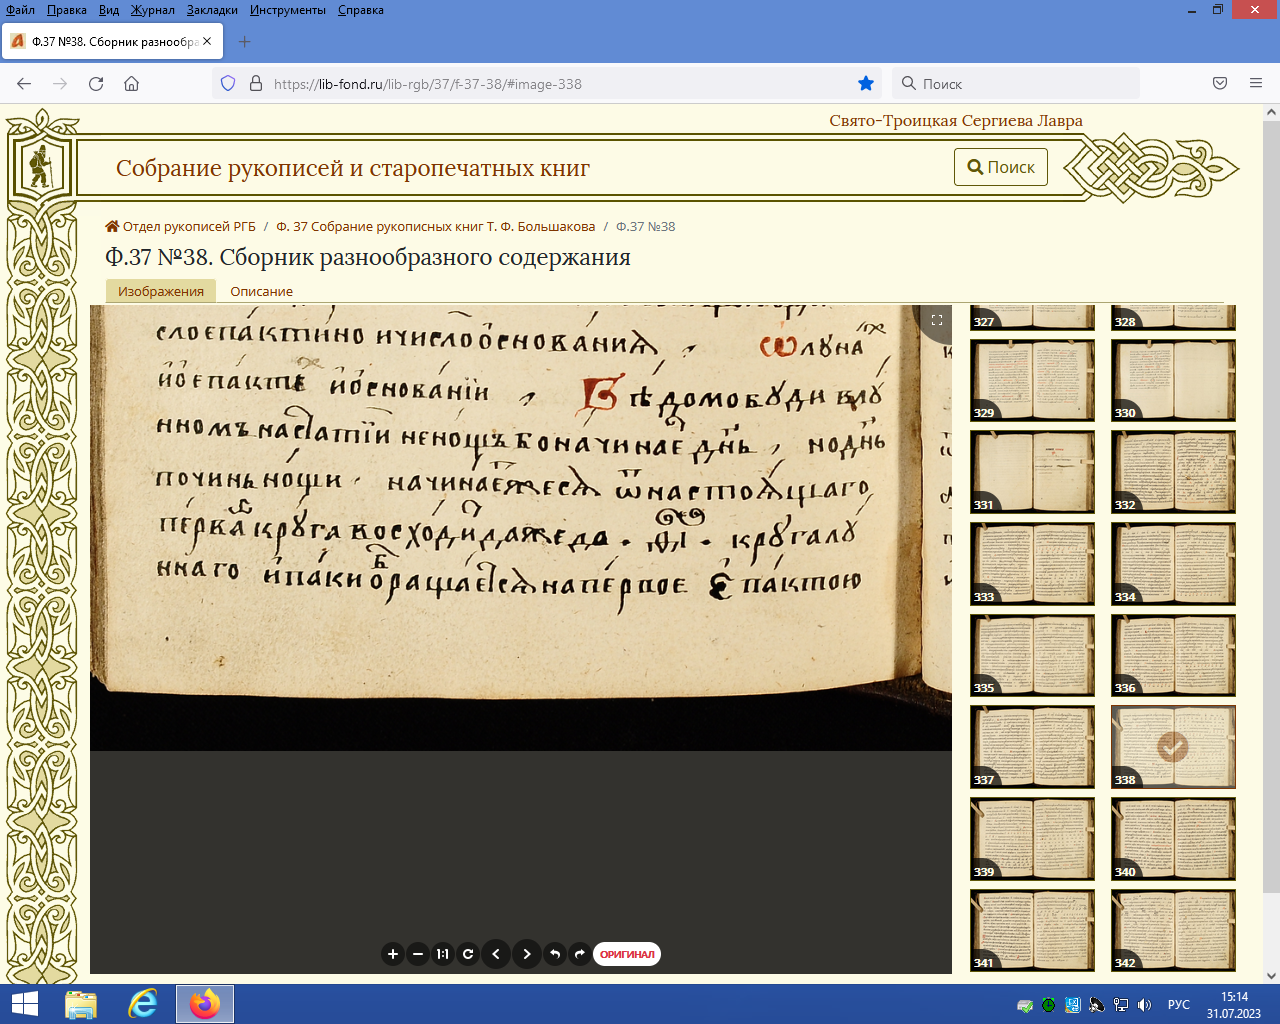 Файл Правка Вид Журнал Закладки Инструменты Справка
Ф.37 №38. Сборник разнообра
https://lib-fond.ru/lib-rgb/37/f-37-38/#image-338
Поиск
Свято-Троицкая Сергиева Лавра
Собрание рукописей и старопечатных книг
Поиск
Отдел рукописей РГБ / Ф. 37 Собрание рукописных книг Т. Ф. Большакова / Ф.37 №38
Ф.37 №38. Сборник разнообразного содержания
Изображения Описание
слоепактино ичислоѻснованиѧ , ѡлуна
иѻепакте иѻснованїи , Вѣдомобуди влу
нномънастатїи ненощъбоначинае днь , ноднь
починьнощи . начинаетжеся ѿнастоѧщаго
перва круга восходидажедо . ді . кругалу
ннаго ипаки ѻращаетсѧнапервое епактою
327 328
329 330
331 332
333 334
335 336
337 338
339 340
341 342
1:1
ОРИГИНАЛ
РУС
15:14
31.07.2023